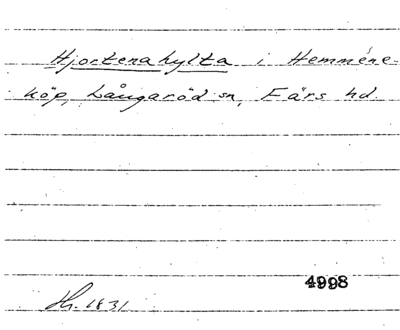 Hjortenahylta i Hemméne-
köp, Långaröd sn, Färs hd.
4998
Hy. 1831